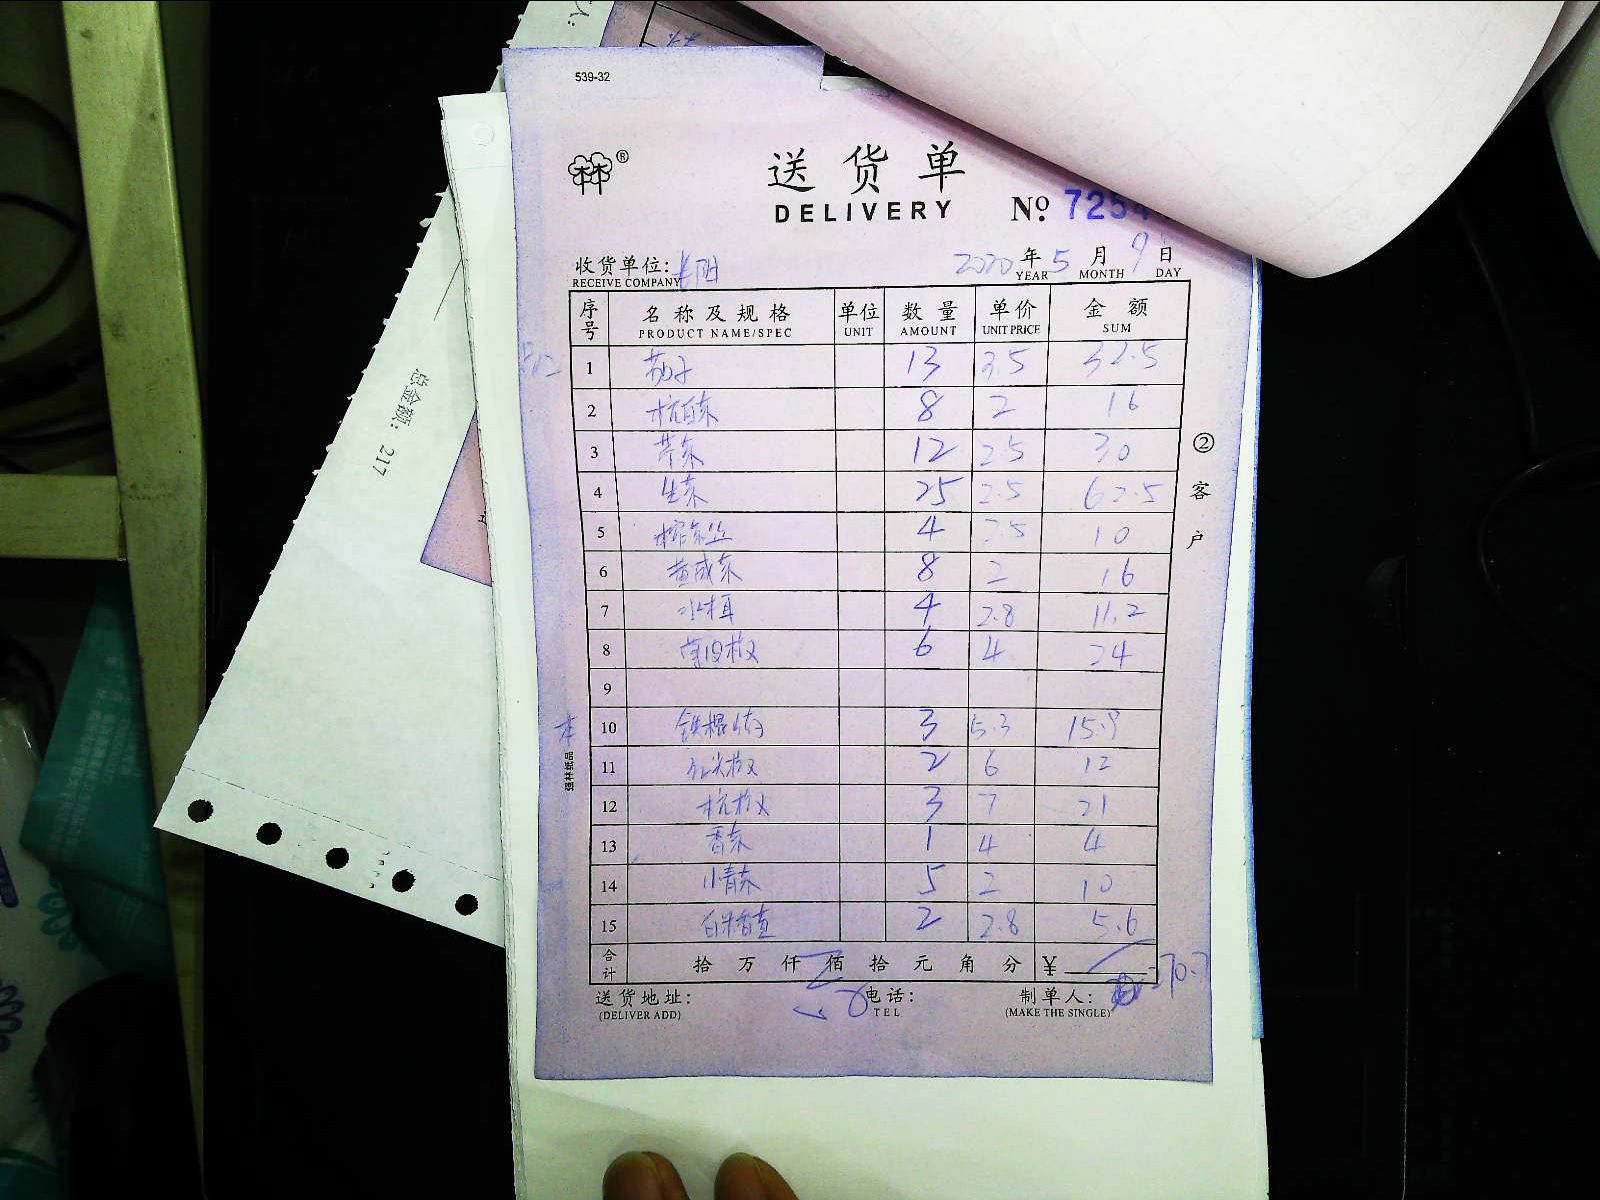 539-32
®
送货单
DELIVERY
No. 7254
收货单位: 长阳
RECEIVE COMPANY
2020 年 5 月 9 日
YEAR MONTH DAY
序号 名称及规格 单位 数量 单价 金额
PRODUCT NAME/SPEC UNIT AMOUNT UNIT PRICE SUM
1 茄子 13 2.5 32.5
2 杭白菜 8 2 16
3 芹菜 12 2.5 30
4 生菜 25 2.5 62.5
5 榨菜丝 4 2.5 10
6 黄咸菜 8 2 16
7 水木耳 4 2.8 11.2
8 薄皮椒 6 4 24
9
10 铁棍 3 5.3 15.9
11 红尖椒 2 6 12
12 杭椒 3 7 21
13 香菜 1 4 4
14 小青菜 5 2 10
15 2 2.8 5.6
合计 拾 万 仟 佰 拾 元 角 分 ¥ 270.7
送货地址: 电话: 制单人:
(DELIVER ADD) TEL (MAKE THE SINGLE)
② 客户
强林纸品
本
总金额: 217